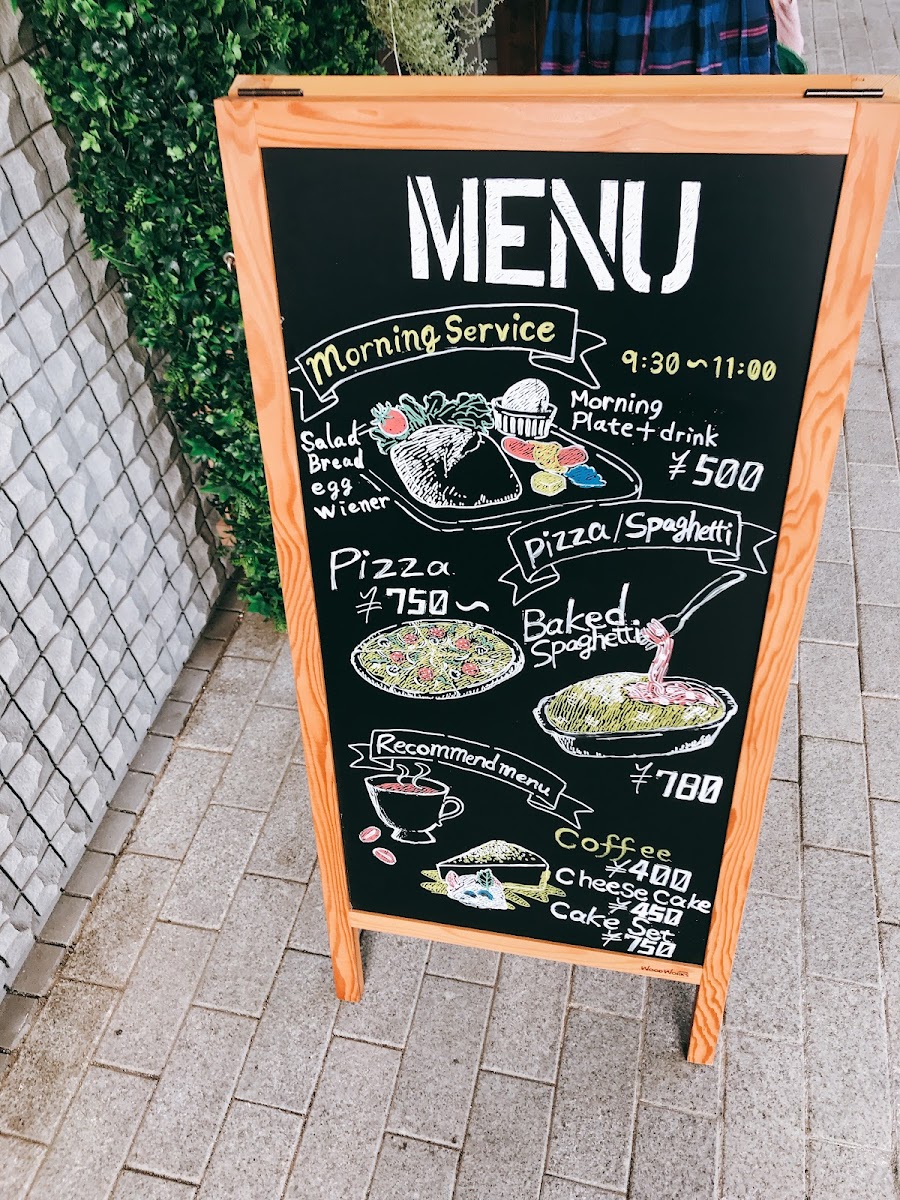 MENU
Morning Service
9:30~11:00
Morning
Plate + drink
¥500
Salad
Bread
egg
Wiener
Pizza/Spaghetti
Pizza
¥750~
Baked
Spaghetti
¥780
Recommend menu
Coffee
¥400
Cheese Cake
¥450
Cake Set
¥750
WOOD WORKS